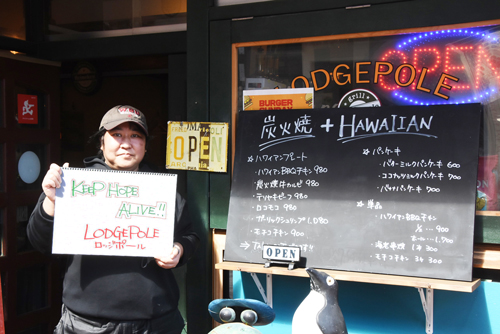 KEEP HOPE
ALIVE!!
LODGEPOLE
ロッジポール
OPEN
OPEN
LODGEPOLE
Grill
BURGER
炭火焼 + HAWAIIAN
☆ハワイアンプレート
・ハワイアンBBQチキン 980
・炭火焼牛カルビ 980
・テリヤキビーフ 980
・ロコモコ 980
・ガーリックシュリンプ 1,080
・モチコチキン 900
OPEN
☆パンケーキ
・バターミルクパンケーキ 600
・ココナッツミルクパンケーキ 700
・バナナパンケーキ 700
☆単品
・ハワイアンBBQチキン
・モチコチキン